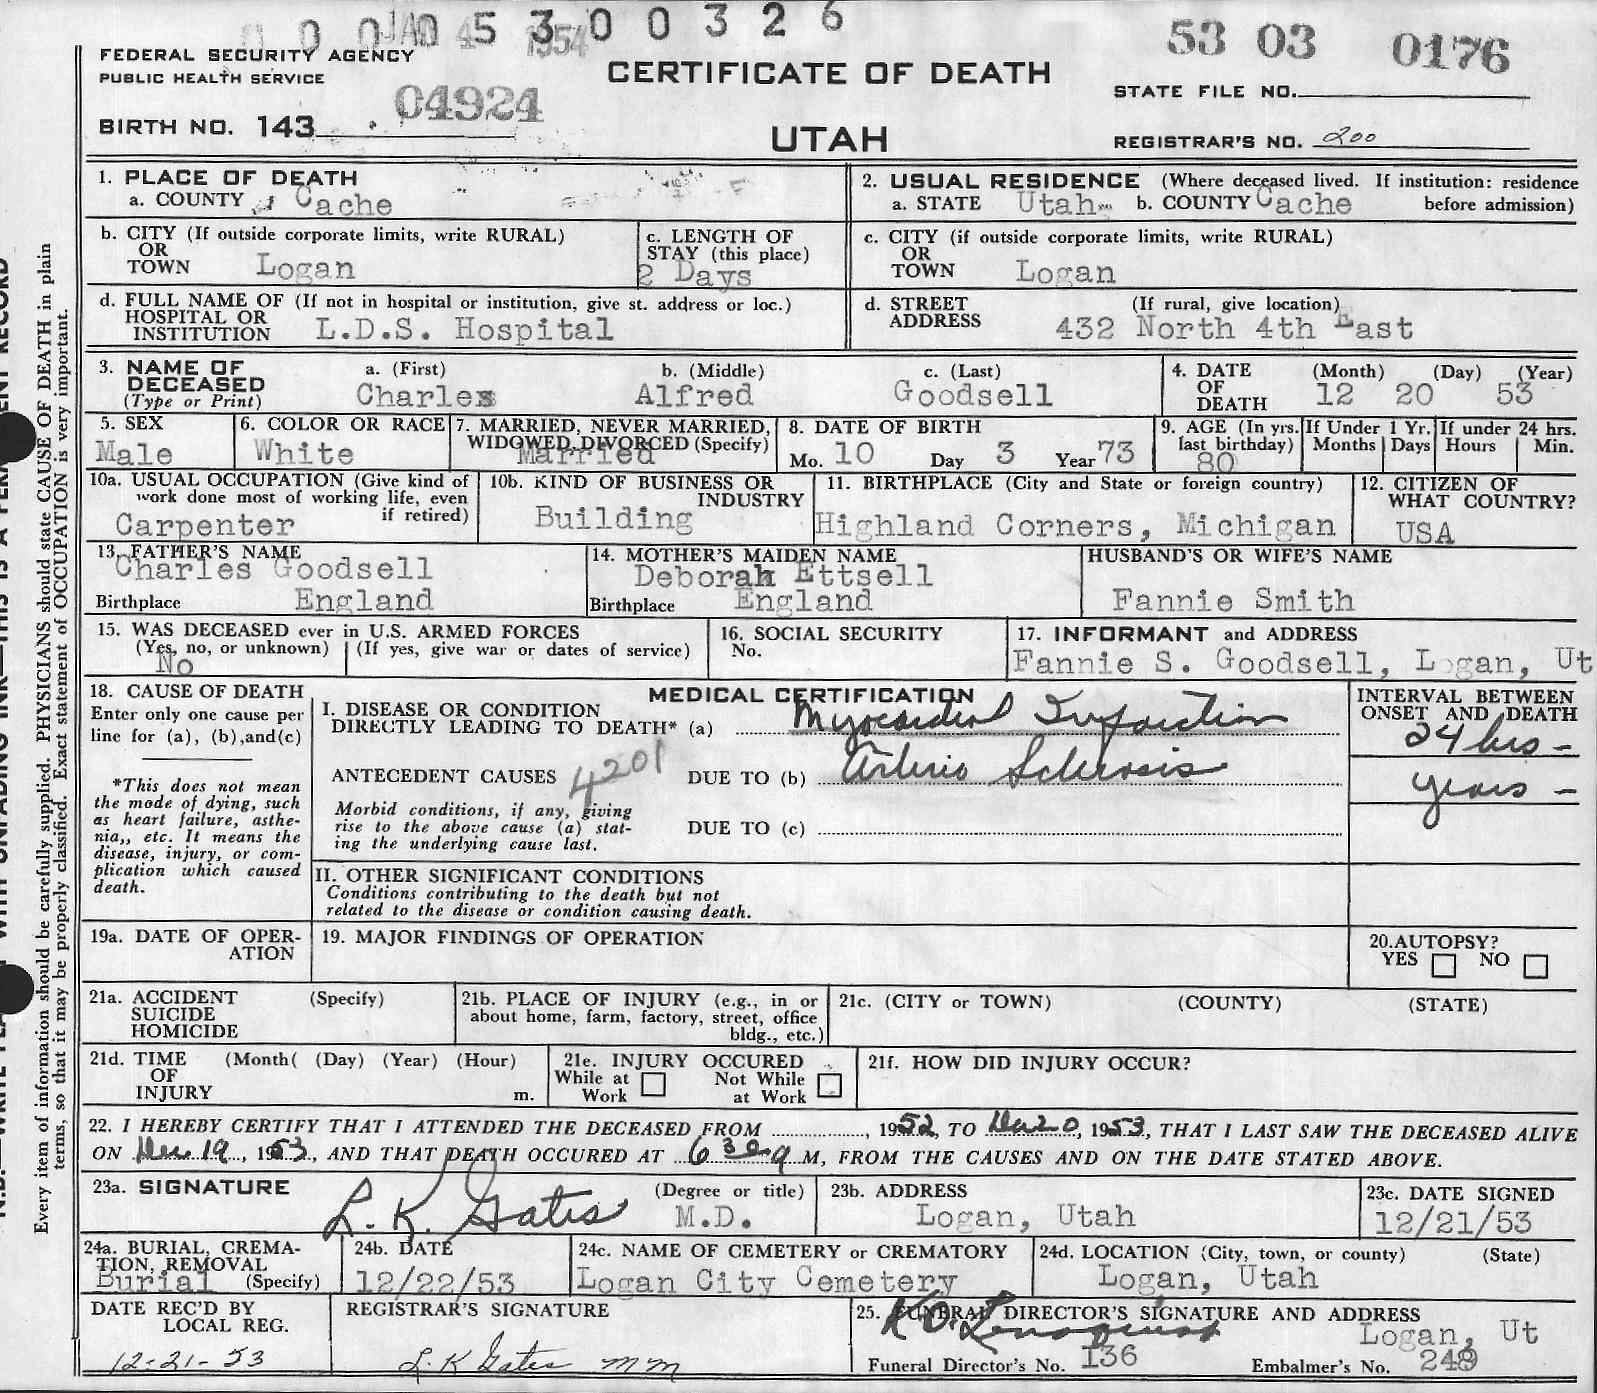 0 0 0 5 3 0 0 3 2 6
JAN 4 1954
53 03 0176
FEDERAL SECURITY AGENCY
PUBLIC HEALTH SERVICE
CERTIFICATE OF DEATH
STATE FILE NO.
04924
BIRTH NO. 143
UTAH
REGISTRAR'S NO. 200
1. PLACE OF DEATH
a. COUNTY Cache
2. USUAL RESIDENCE (Where deceased lived. If institution: residence
a. STATE Utah b. COUNTY Cache before admission)
b. CITY (If outside corporate limits, write RURAL)
OR
TOWN Logan
c. LENGTH OF
STAY (this place)
2 Days
c. CITY (if outside corporate limits, write RURAL)
OR
TOWN Logan
d. FULL NAME OF (If not in hospital or institution, give st. address or loc.)
HOSPITAL OR
INSTITUTION L.D.S. Hospital
d. STREET (If rural, give location)
ADDRESS 432 North 4th East
3. NAME OF
DECEASED
(Type or Print)
a. (First) b. (Middle) c. (Last)
Charles Alfred Goodsell
4. DATE (Month) (Day) (Year)
OF
DEATH 12 20 53
5. SEX
Male
6. COLOR OR RACE
White
7. MARRIED, NEVER MARRIED,
WIDOWED, DIVORCED (Specify)
Married
8. DATE OF BIRTH
Mo. 10 Day 3 Year 73
9. AGE (In yrs.
last birthday)
80
If Under 1 Yr.
Months Days
If under 24 hrs.
Hours Min.
10a. USUAL OCCUPATION (Give kind of
work done most of working life, even
if retired)
Carpenter
10b. KIND OF BUSINESS OR
INDUSTRY
Building
11. BIRTHPLACE (City and State or foreign country)
Highland Corners, Michigan
12. CITIZEN OF
WHAT COUNTRY?
USA
13. FATHER'S NAME
Charles Goodsell
Birthplace England
14. MOTHER'S MAIDEN NAME
Deborah Ettsell
Birthplace England
HUSBAND'S OR WIFE'S NAME
Fannie Smith
15. WAS DECEASED ever in U.S. ARMED FORCES
(Yes, no, or unknown) (If yes, give war or dates of service)
No
16. SOCIAL SECURITY
No.
17. INFORMANT and ADDRESS
Fannie S. Goodsell, Logan, Ut
18. CAUSE OF DEATH
Enter only one cause per
line for (a), (b), and (c)
*This does not mean
the mode of dying, such
as heart failure, asthe-
nia,, etc. It means the
disease, injury, or com-
plication which caused
death.
MEDICAL CERTIFICATION
I. DISEASE OR CONDITION
DIRECTLY LEADING TO DEATH* (a) Myocardial Infarction
ANTECEDENT CAUSES 4201 DUE TO (b) Arterio Sclerosis
Morbid conditions, if any, giving
rise to the above cause (a) stat-
ing the underlying cause last.
DUE TO (c)
INTERVAL BETWEEN
ONSET AND DEATH
24 hrs -
years -
II. OTHER SIGNIFICANT CONDITIONS
Conditions contributing to the death but not
related to the disease or condition causing death.
19a. DATE OF OPER-
ATION
19. MAJOR FINDINGS OF OPERATION
20. AUTOPSY?
YES NO
21a. ACCIDENT (Specify)
SUICIDE
HOMICIDE
21b. PLACE OF INJURY (e.g., in or
about home, farm, factory, street, office
bldg., etc.)
21c. (CITY or TOWN) (COUNTY) (STATE)
21d. TIME (Month( (Day) (Year) (Hour)
OF
INJURY m.
21e. INJURY OCCURED
While at Work Not While at Work
21f. HOW DID INJURY OCCUR?
22. I HEREBY CERTIFY THAT I ATTENDED THE DECEASED FROM , 1952, TO Dec 20, 1953, THAT I LAST SAW THE DECEASED ALIVE
ON Dec 19, 1953, AND THAT DEATH OCCURED AT 6 30 a M, FROM THE CAUSES AND ON THE DATE STATED ABOVE.
23a. SIGNATURE (Degree or title)
L. K. Gates M.D.
23b. ADDRESS
Logan, Utah
23c. DATE SIGNED
12/21/53
24a. BURIAL, CREMA-
TION, REMOVAL
Burial (Specify)
24b. DATE
12/22/53
24c. NAME OF CEMETERY or CREMATORY
Logan City Cemetery
24d. LOCATION (City, town, or county) (State)
Logan, Utah
DATE REC'D BY
LOCAL REG.
12-21-53
REGISTRAR'S SIGNATURE
L. K Gates mm
25. FUNERAL DIRECTOR'S SIGNATURE AND ADDRESS
Logan, Ut
Funeral Director's No. 136 Embalmer's No. 248
Every item of information should be carefully supplied. PHYSICIANS should state CAUSE OF DEATH in plain
terms, so that it may be properly classified. Exact statement of OCCUPATION is very important.